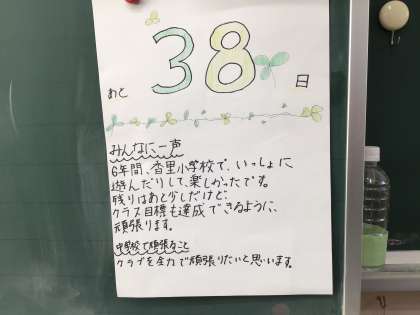 あと 38 日
みんなに一声
6年間、香里小学校で、いっしょに
遊んだりして、楽しかったです。
残りはあと少しだけど、
クラス目標も達成できるように、
頑張ります。
中学校で頑張ること
クラブを全力で頑張りたいと思います。